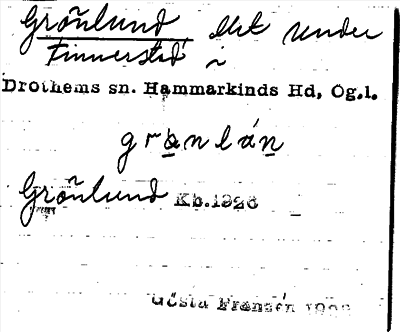 Grönlund lht under
Finnerstad i
Drothems sn. Hammarkinds Hd, Ög.l.
Grönlund Kb.1926
Gösta Franzén